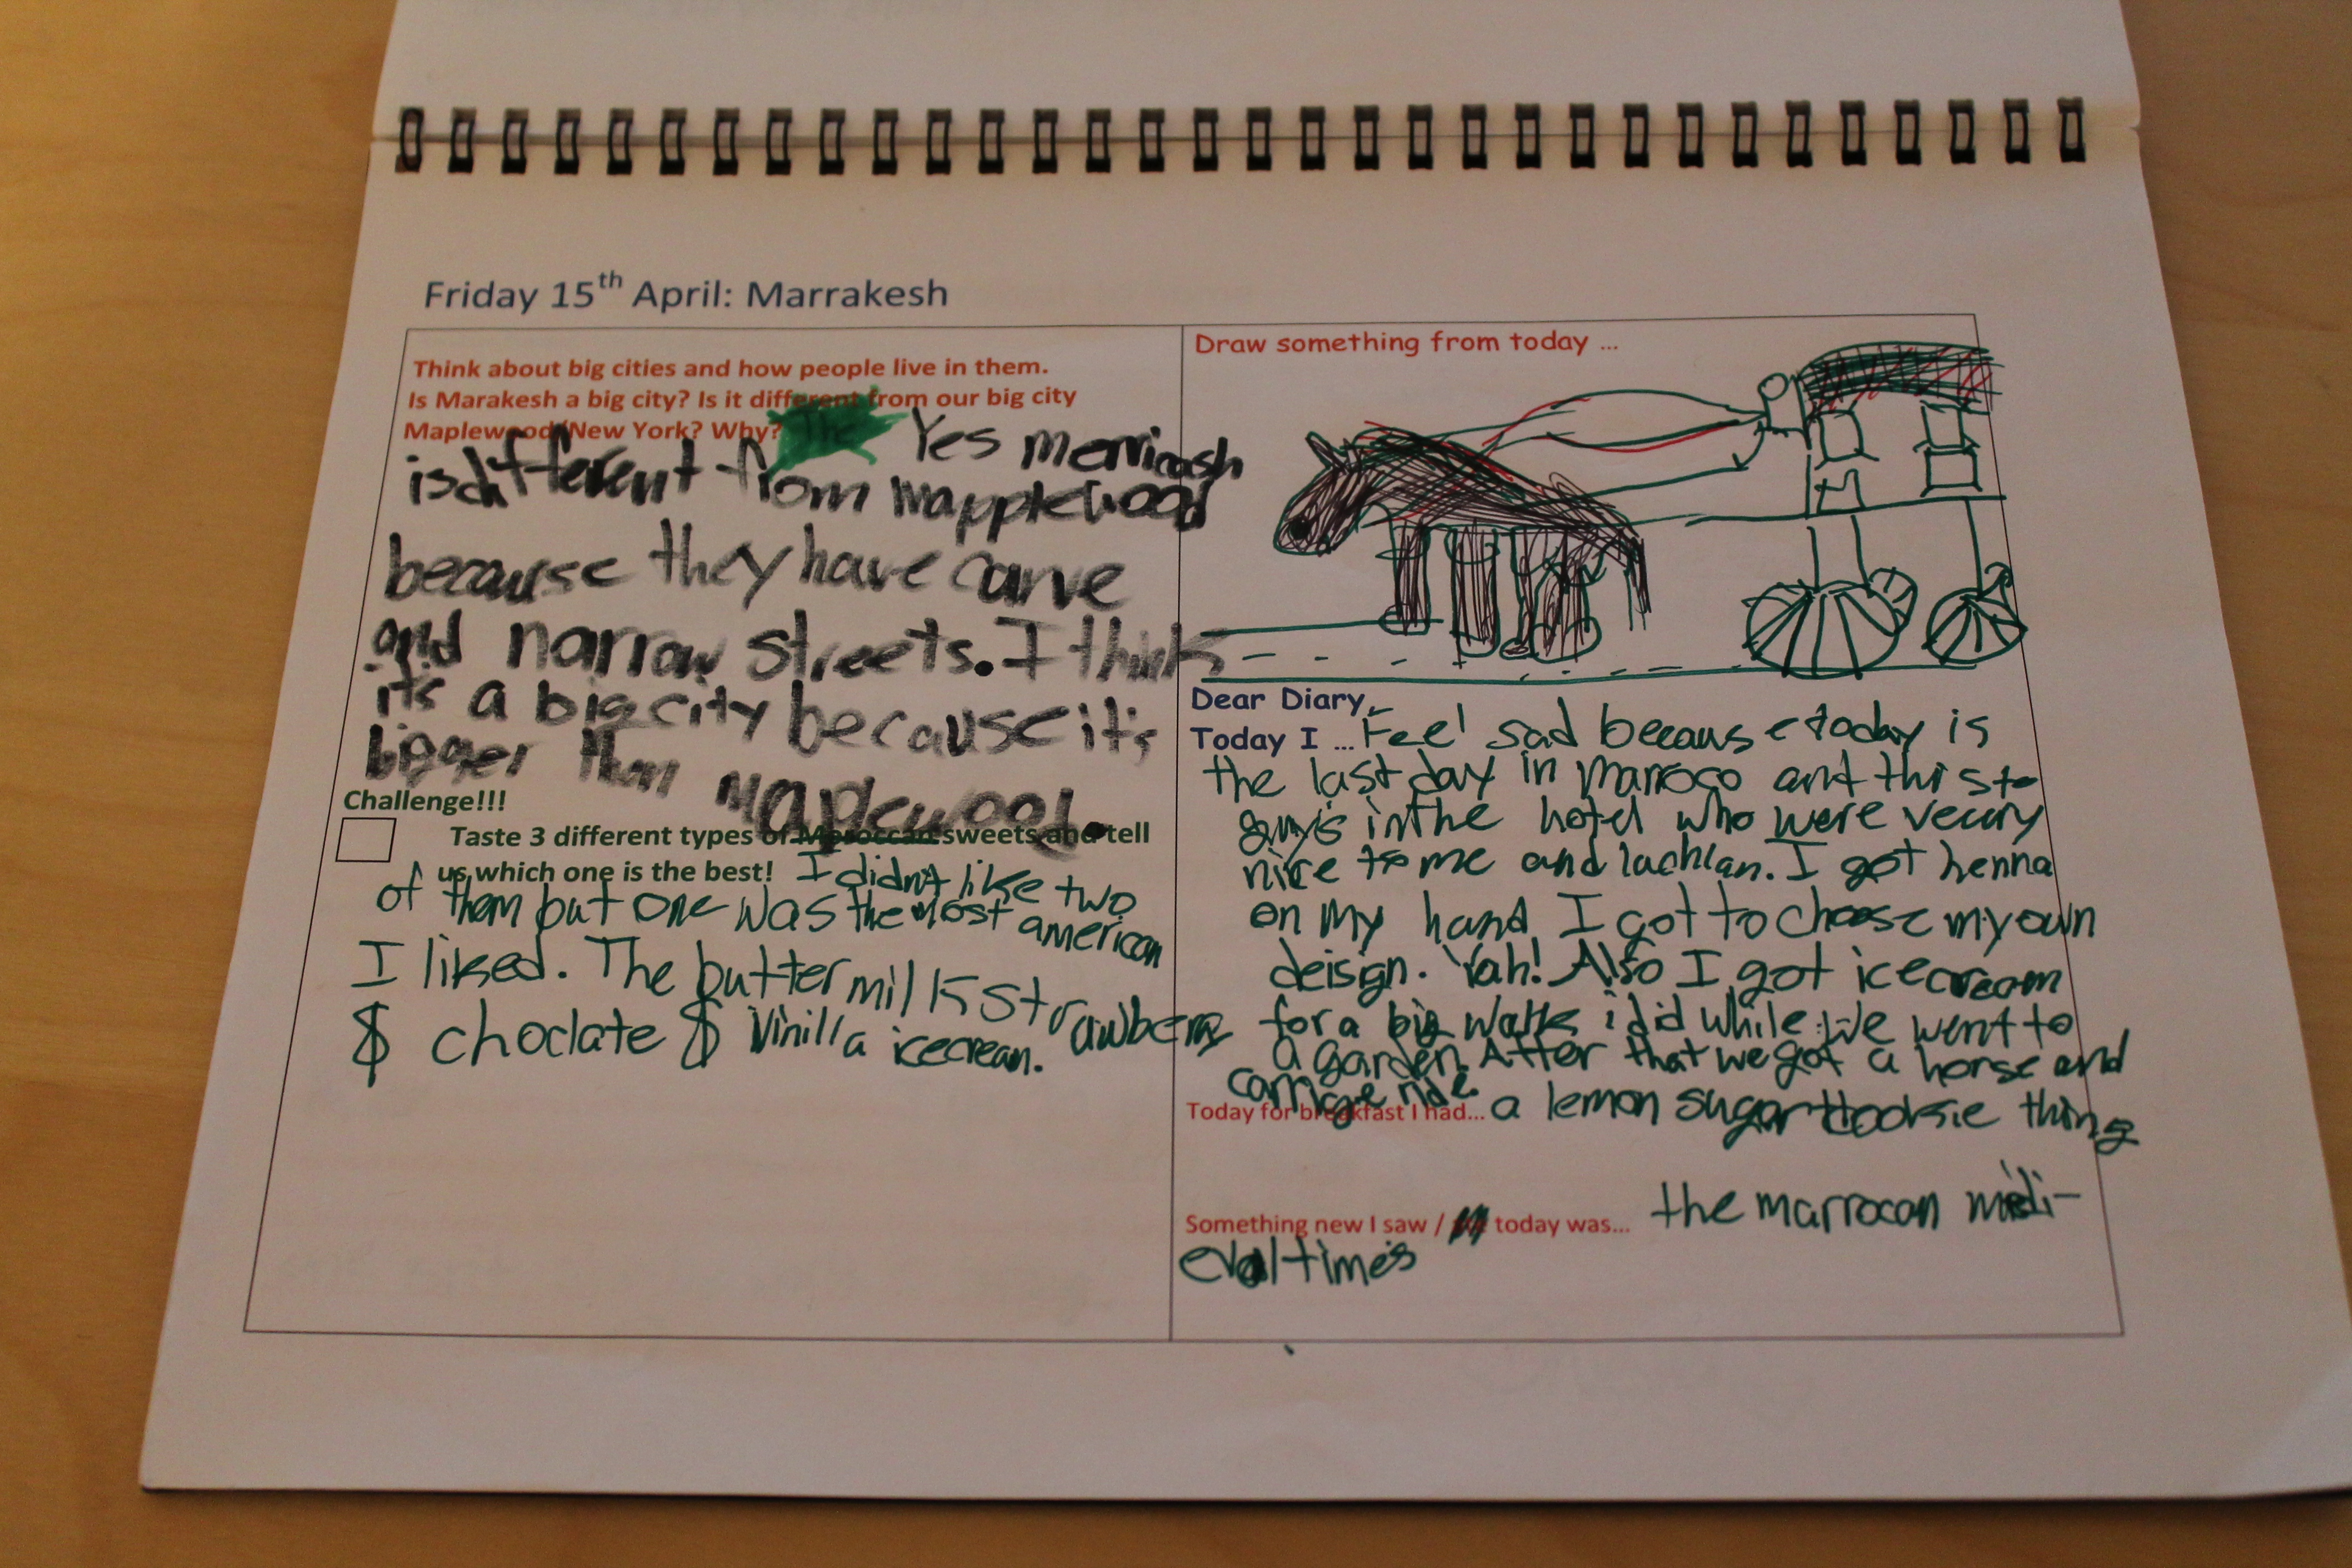 Friday 15th April: Marrakesh
Think about big cities and how people live in them.
Is Marakesh a big city? Is it different from our big city
Maplewood/New York? Why? The Yes merricash
is different from mapplewood
because they have carve
and narrow streets. I think
it's a big city because it's
bigger than Maplewood.
Challenge!!!
Taste 3 different types of Moroccan sweets and tell
us which one is the best! I didn't like two
of them but one was the most american
I liked. The buttermilk strawberry
$ choclate $ Vinilla icecrean.
Draw something from today ...
Dear Diary,
Today I ... Feel sad because today is
the last day in marroco and this te
guy's in the hotel who were veary
nice to me and lachlan. I got henna
on my hand I got to choose my own
deisign. Yah! Also I got icecream
for a big walk i did while we went to
a garden. After that we got a horse and
carrige ride
Today for breakfast I had... a lemon sugar tooksie thing
Something new I saw / today was... the marrocan medi-
eval times